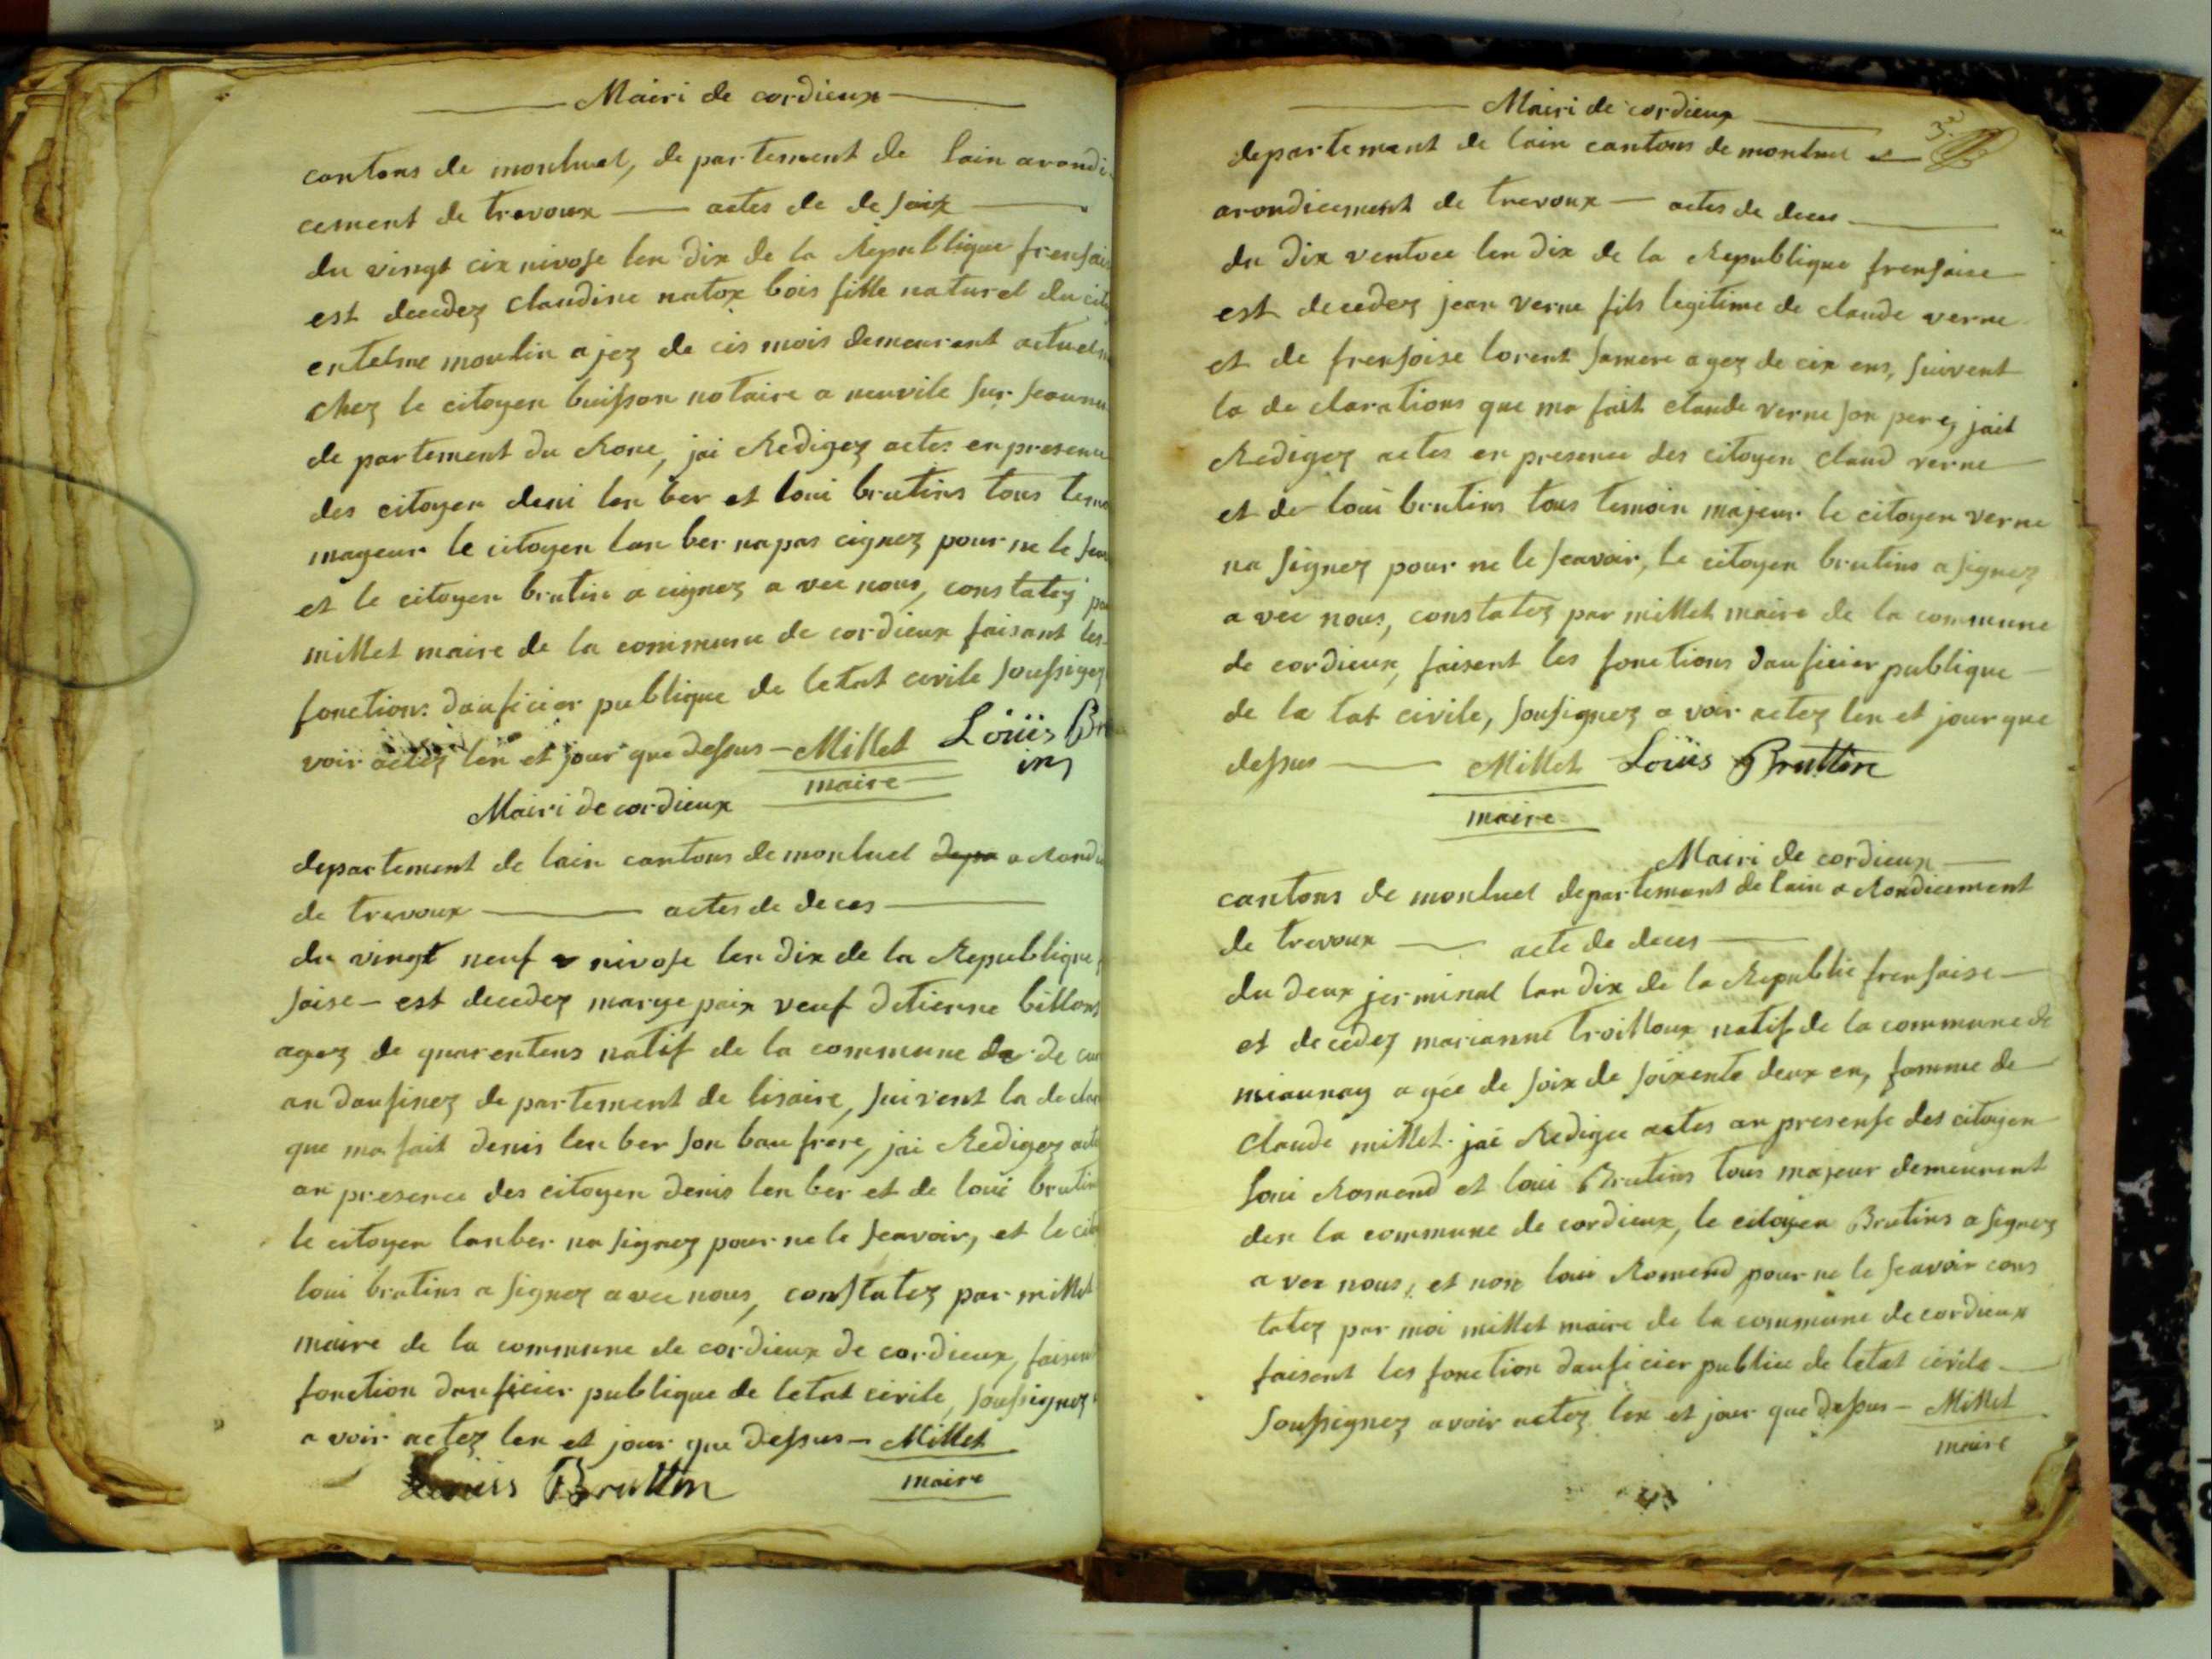 Mairi de cordieux
cantons de monluel, de partement de lain arondi
cement de trevoux — actes de de saix
du vingt cix nivose len dix de la Republique frensais
est decedez Claudine natox bois fille naturel du cit
entelme moulin a jez de cis mois demeurent actuel
chez le citoyen buisson notaire a neuvile sur
de partement du Rone, jai Redigez actes en presence
des citoyen deni len ber et loui brutins tous temo
mageur le citoyen lan ber na pas cignez pour ne le
et le citoyen brutin a cignez a vec nous, constatez
millet maire de la commune de cordieux faisant les
fonctions dauficier publique de letat civile soussigez
voir actez len et jour que dessus — Millet Loüis
maire
Mairi de cordieux
departement de lain cantons de monluel a Rondi
de trevoux — actes de deces
du vingt neuf nivose len dix de la Republique
saise — est decedez marye paix veuf detienne billons
agez de quarentens natif de la commune de
an daufinez de partement de lisaire, suivent la de cla
que ma fait denis len ber son bau frere, jai Redigez
an presence des citoyen denis len ber et de loui brutin
le citoyen lanber na signez pour ne le seavoir, et le cit
loui brutins a signez a vec nous, constatez par millet
maire de la commune de cordieux de cordieux, faisen
fonction dauficier publique de letat civile, soussignez
a voir actez len et jour que dessus — Millet
maire
Louis Bruttin
Mairi de cordieux
3e
departement de lain cantons de monluel
arondicement de trevoux — actes de deces
du dix ventoce len dix de la Republique frensaise
est decedez jean verne fils legitime de claude verne
et de frensoise lorent samere agez de cix ens, suivent
la de clarations que ma fait claude verne son pere, jait
Redigez actes en presence des citoyen claud verne
et de loui brutins tous temoin majeur le citoyen verne
na signez pour ne le seavoir, le citoyen brutins a signez
a vec nous, constatez par millet maire de la commune
de cordieux, faisent les fonctions dauficier publique
de la tat civile, sousignez a voir actez len et jour que
dessus — Millet Loüis Bruttin
maire
Mairi de cordieux
cantons de monluel departement de lain a Rondicement
de trevoux — acte de deces
du deux jerminal lan dix de la Republic frensaise
et decedez marianne troilloux natif de la commune de
miaunay a gée de soix de soixente deux en, famme de
Claude millet jai Redigee actes an presense des citoyen
loui Romend et loui Brutins tous majeur demeurent
den la commune de cordieux, le citoyen Brutins a signez
a vec nous, et non loui Romend pour ne le seavoir cons
tatez par moi millet maire de la commune de cordieux
faisent les fonction dauficier public de letat civile
soussignez avoir actez len et jour que dessus — Millet
maire